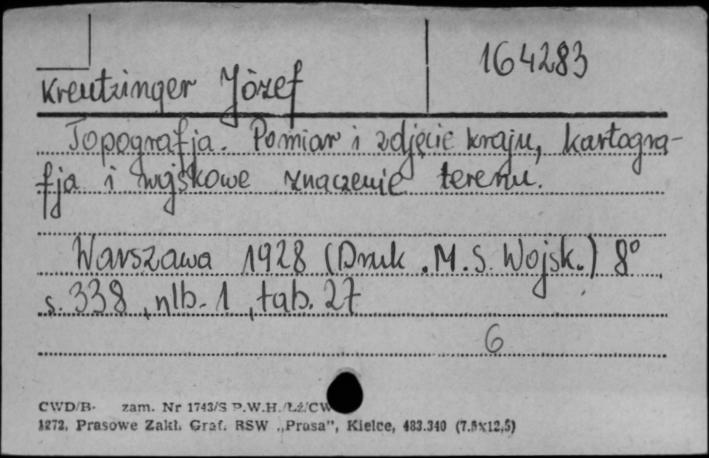 164283
Kreutzinger Józef
Topografja. Pomiar i zdjęcie kraju, kartogra-
fja i wojskowe znaczenie terenu.
Warszawa 1928 (Druk. M.S. Wojsk.) 8°
s. 338, nlb. 1, tab. 27
6
CWD/B- zam. Nr 1743/S P.W.H./Łź/CW
1272, Prasowe Zakł. Graf. RSW „Prasa”, Kielce, 483.340 (7.5x12.5)